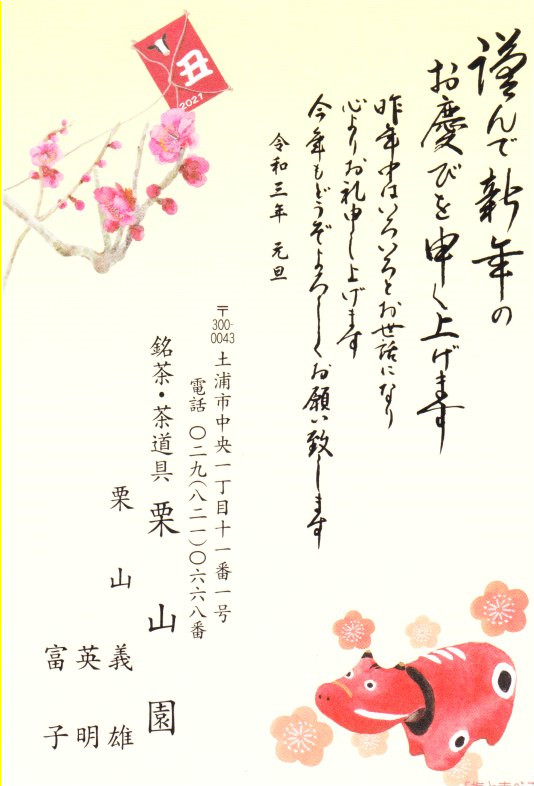 謹んで新年の
お慶びを申し上げます
昨年中はいろいろとお世話になり
心よりお礼申し上げます
今年もどうぞよろしくお願い致します
令和三年 元旦
丑
2021
〒300-0043 土浦市中央一丁目十一番一号
電話 〇二九(八二一)〇六六八番
銘茶・茶道具 栗山園
栗山 義雄
英明
富子